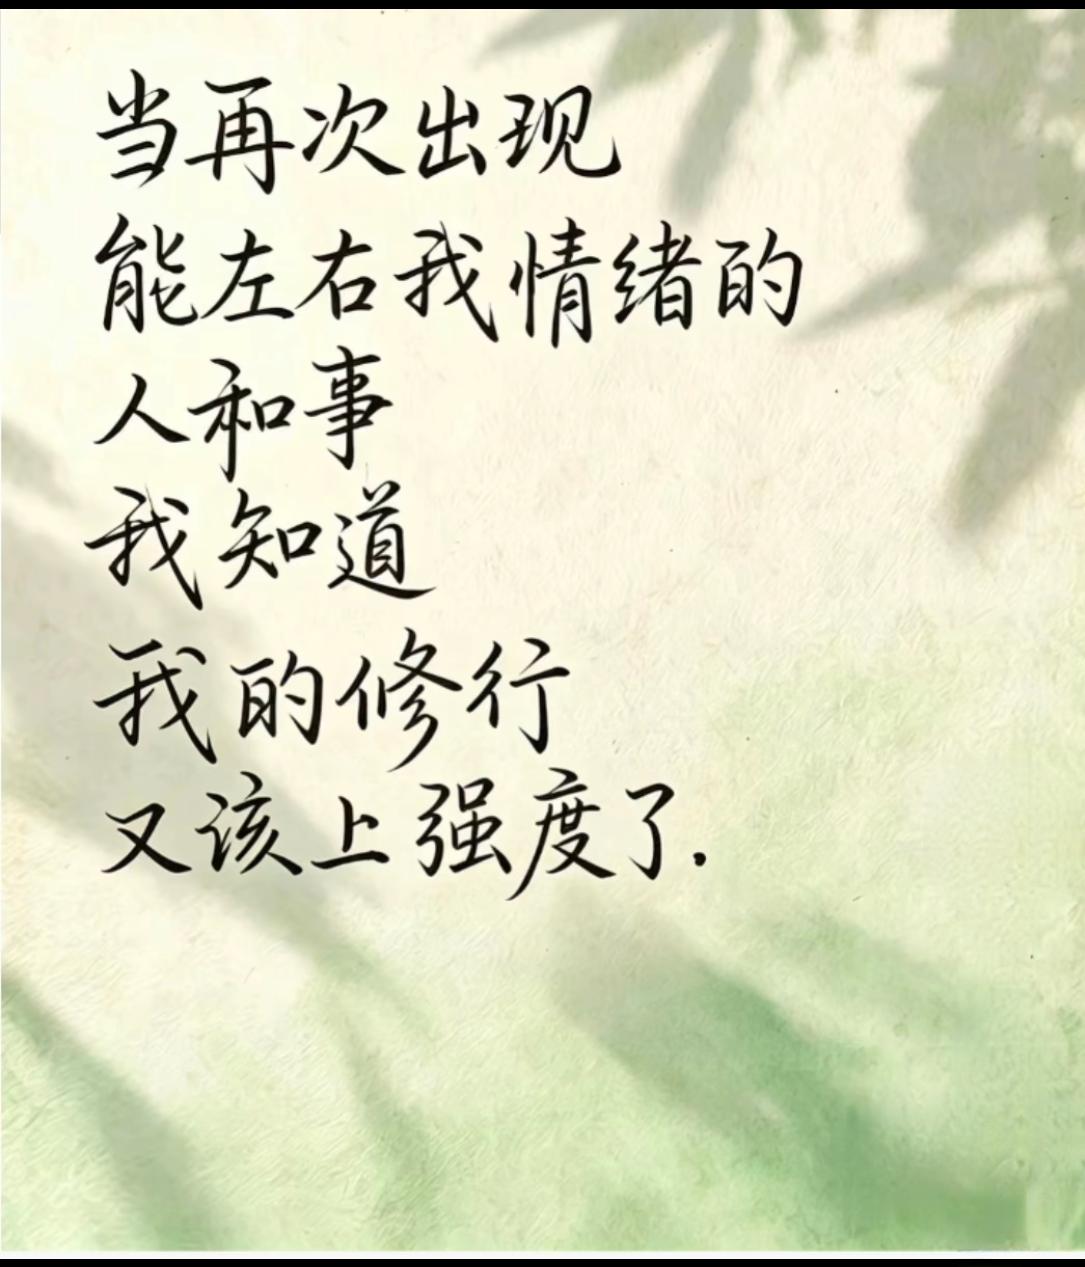 当再次出现
能左右我情绪的
人和事
我知道
我的修行
又该上强度了.